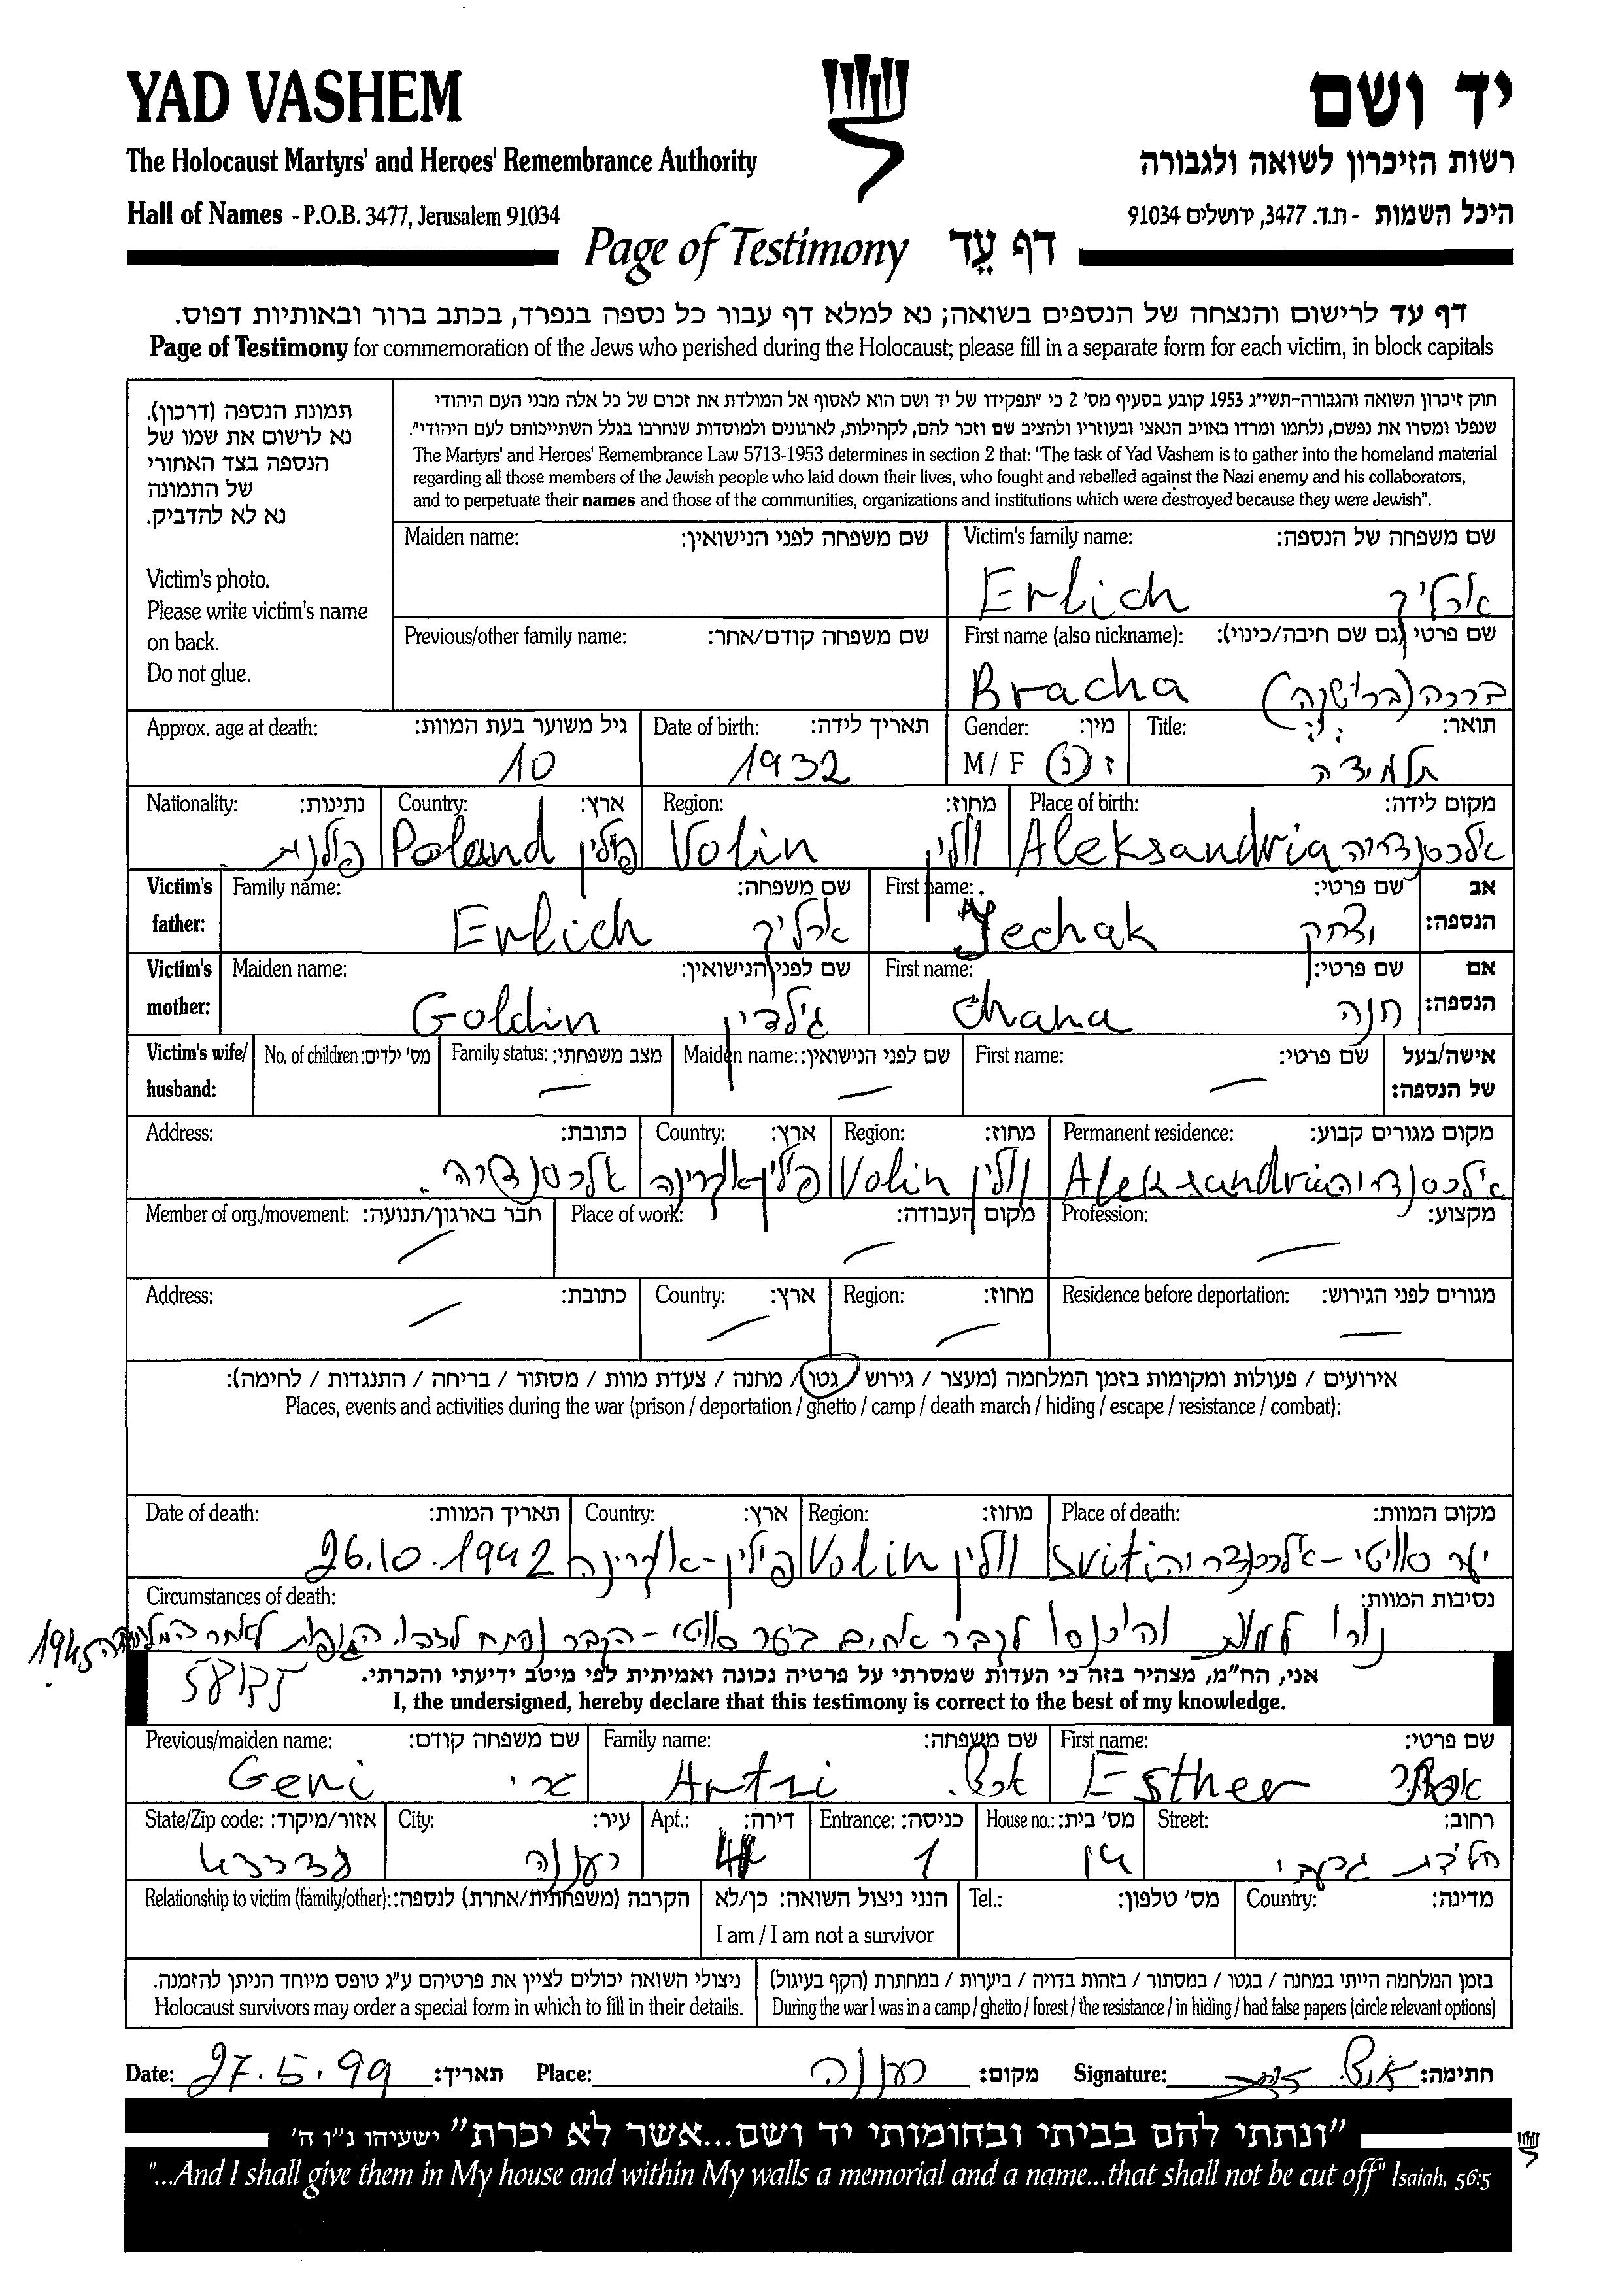 YAD VASHEM
יד ושם
The Holocaust Martyrs' and Heroes' Remembrance Authority
רשות הזיכרון לשואה ולגבורה
Hall of Names - P.O.B. 3477, Jerusalem 91034
היכל השמות - ת.ד. 3477, ירושלים 91034
Page of Testimony דף עֵד
דף עד לרישום והנצחה של הנספים בשואה; נא למלא דף עבור כל נספה בנפרד, בכתב ברור ובאותיות דפוס.
Page of Testimony for commemoration of the Jews who perished during the Holocaust; please fill in a separate form for each victim, in block capitals
תמונת הנספה (דרכון).
נא לרשום את שמו של
הנספה בצד האחורי
של התמונה
נא לא להדביק.
Victim's photo.
Please write victim's name
on back.
Do not glue.
חוק זיכרון השואה והגבורה-תשי"ג 1953 קובע בסעיף מס' 2 כי "תפקידו של יד ושם הוא לאסוף אל המולדת את זכרם של כל אלה מבני העם היהודי
שנפלו ומסרו את נפשם, נלחמו ומרדו באויב הנאצי ובעוזריו ולהציב שם וזכר להם, לקהילות, לארגונים ולמוסדות שנחרבו בגלל השתייכותם לעם היהודי".
The Martyrs' and Heroes' Remembrance Law 5713-1953 determines in section 2 that: "The task of Yad Vashem is to gather into the homeland material
regarding all those members of the Jewish people who laid down their lives, who fought and rebelled against the Nazi enemy and his collaborators,
and to perpetuate their names and those of the communities, organizations and institutions which were destroyed because they were Jewish".
Maiden name: שם משפחה לפני הנישואין:
Victim's family name: שם משפחה של הנספה:
Erlich ארליך
Previous/other family name: שם משפחה קודם/אחר:
First name (also nickname): שם פרטי (גם שם חיבה/כינוי):
Bracha ברכה
Approx. age at death: גיל משוער בעת המוות:
10
Date of birth: תאריך לידה:
1932
Gender: מין:
M / F ז נ
Title: תואר:
תלמידה
Nationality: נתינות:
פולנית
Country: ארץ:
Poland פולין
Region: מחוז:
Volin וולין
Place of birth: מקום לידה:
Aleksandria אלכסנדריה
Victim's father: אב הנספה:
Family name: שם משפחה:
Erlich ארליך
First name: שם פרטי:
Jechak יצחק
Victim's mother: אם הנספה:
Maiden name: שם לפני הנישואין:
Goldin גולדין
First name: שם פרטי:
Chana חנה
Victim's wife/ husband: אישה/בעל של הנספה:
No. of children: מס' ילדים:
Family status: מצב משפחתי:
—
Maiden name: שם לפני הנישואין:
—
First name: שם פרטי:
—
Address: כתובת:
אלכסנדריה.
Country: ארץ:
פולין-אוקריינה
Region: מחוז:
Volin וולין
Permanent residence: מקום מגורים קבוע:
Aleksandria אלכסנדריה
Member of org./movement: חבר בארגון/תנועה:
—
Place of work: מקום העבודה:
—
Profession: מקצוע:
—
Address: כתובת:
—
Country: ארץ:
—
Region: מחוז:
—
Residence before deportation: מגורים לפני הגירוש:
—
אירועים / פעולות ומקומות בזמן המלחמה (מעצר / גירוש / גטו / מחנה / צעדת מוות / מסתור / בריחה / התנגדות / לחימה):
Places, events and activities during the war (prison / deportation / ghetto / camp / death march / hiding / escape / resistance / combat):
Date of death: תאריך המוות:
26.10.1942
Country: ארץ:
פולין-אוקריינה
Region: מחוז:
Volin וולין
Place of death: מקום המוות:
Sviti יער סוויטי - אלכסנדריה
Circumstances of death: נסיבות המוות:
נורו למוות והוכנסו לקבר אחים ביער סוויטי - הקבר נפתח לאחר המלחמה 1945
אני, הח"מ, מצהיר בזה כי העדות שמסרתי על פרטיה נכונה ואמיתית לפי מיטב ידיעתי והכרתי.
I, the undersigned, hereby declare that this testimony is correct to the best of my knowledge.
Previous/maiden name: שם משפחה קודם:
Geri גרי
Family name: שם משפחה:
Artzi ארצי
First name: שם פרטי:
Esther אסתר
State/Zip code: אזור/מיקוד:
City: עיר:
רעננה
Apt.: דירה:
Entrance: כניסה:
1
House no.: מס' בית:
Street: רחוב:
Relationship to victim (family/other): הקרבה (משפחתית/אחרת) לנספה:
הנני ניצול השואה: כן/לא
I am / I am not a survivor
Tel.: מס' טלפון:
Country: מדינה:
ניצולי השואה יכולים לציין את פרטיהם ע"ג טופס מיוחד הניתן להזמנה.
Holocaust survivors may order a special form in which to fill in their details.
בזמן המלחמה הייתי במחנה / בגטו / במסתור / בזהות בדויה / ביערות / במחתרת (הקף בעיגול)
During the war I was in a camp / ghetto / forest / the resistance / in hiding / had false papers (circle relevant options)
Date: 27.5.99 תאריך: Place: רעננה מקום: Signature: חתימה:
"ונתתי להם בביתי ובחומותי יד ושם...אשר לא יכרת" ישעיהו נ"ו ה'
"...And I shall give them in My house and within My walls a memorial and a name...that shall not be cut off" Isaiah, 56:5